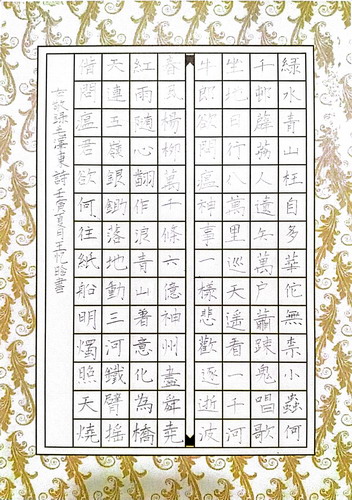 綠水青山枉自多華佗無柰小蟲何
千邨薜荔人遺矢萬户蕭踈鬼唱歌
坐地日行八萬里巡天遥看一千河
牛郎欲問瘟神事一樣悲歡逐逝波
春風楊柳萬千條六億神州盡舜堯
紅雨隨心翻作浪青山著意化為橋
天連五嶺銀鋤落地動三河鐵臂搖
借問瘟君欲何往紙船明燭照天燒
錄毛澤東詩壬寅夏月王書